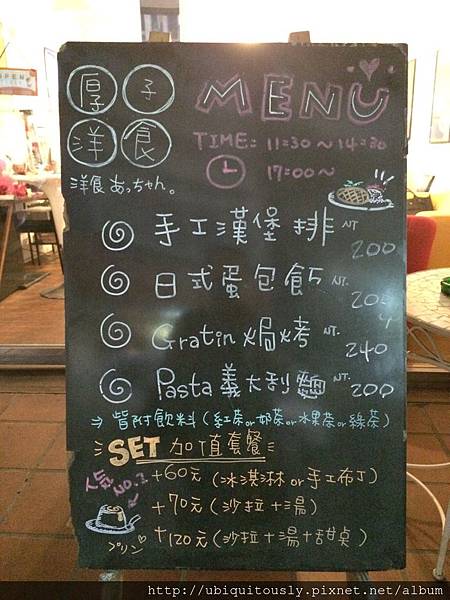 厚子
洋食
洋食あっちゃん。
MENU
TIME: 11:30～14:30
17:00～
手工漢堡排 NT. 200
日式蛋包飯 NT. 200
Gratin焗烤 NT. 240
Pasta義大利麵 NT. 200
⇒皆附飲料(紅茶or奶茶or水果茶or綠茶)
SET 加值套餐
人気NO.1
+60元(冰淇淋 or 手工布丁)
+70元(沙拉+湯)
+120元(沙拉+湯+甜點)
プリン
http://ubiquitously.pixnet.net/album